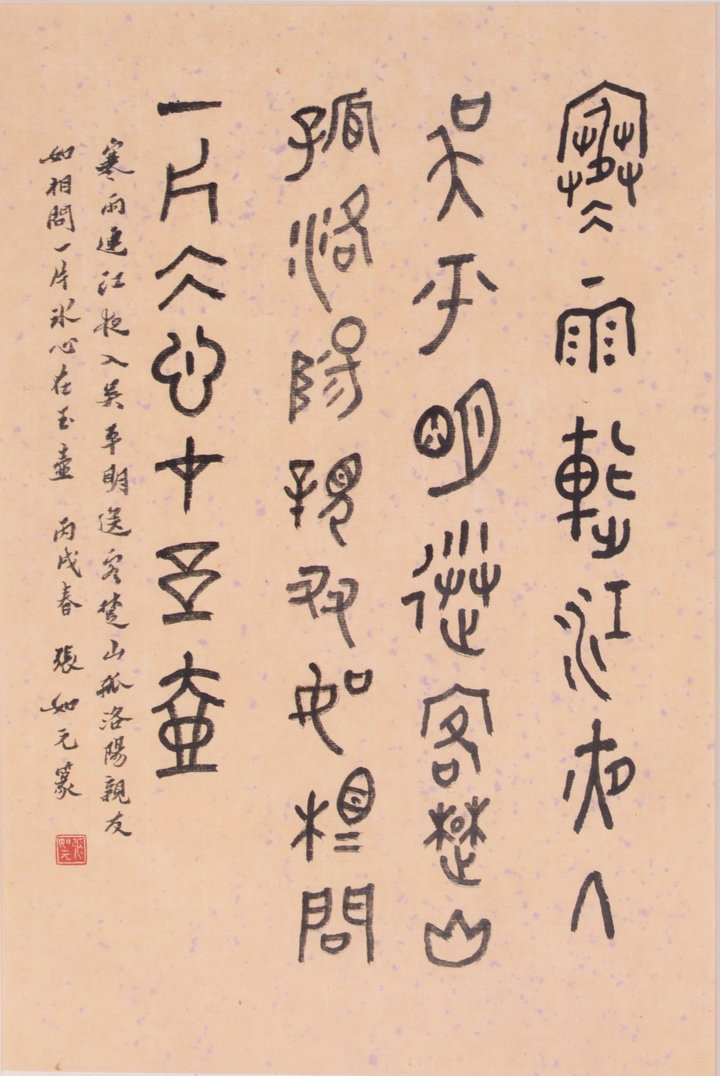 寒雨連江夜入
吳平明送客楚山
孤洛陽親友如相問
一片冰心在玉壺
寒雨連江夜入吳平明送客楚山孤洛陽親友
如相問一片冰心在玉壺 丙戌春 張如元篆
張如元